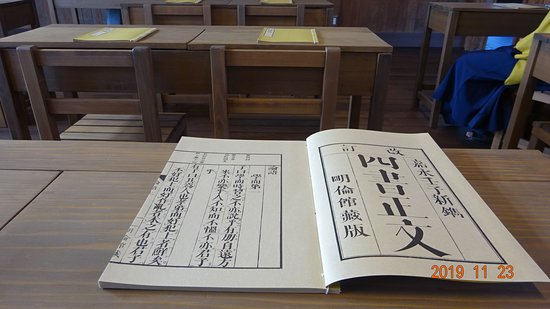 改訂
嘉永壬子新鐫
四書正文
明倫館藏版
論語
學而第
子曰學而時習之不亦説乎有朋自遠方
來不亦樂乎人不知而不慍不亦君子
乎
有子曰其爲人也孝弟而好犯上者鮮矣
不好犯上而好作亂者未之有也君子
2019 11 23